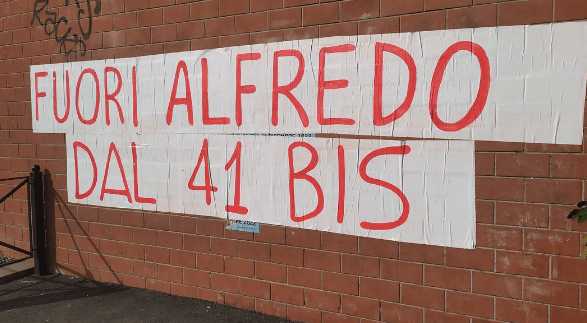 FUORI ALFREDO
DAL 41 BIS